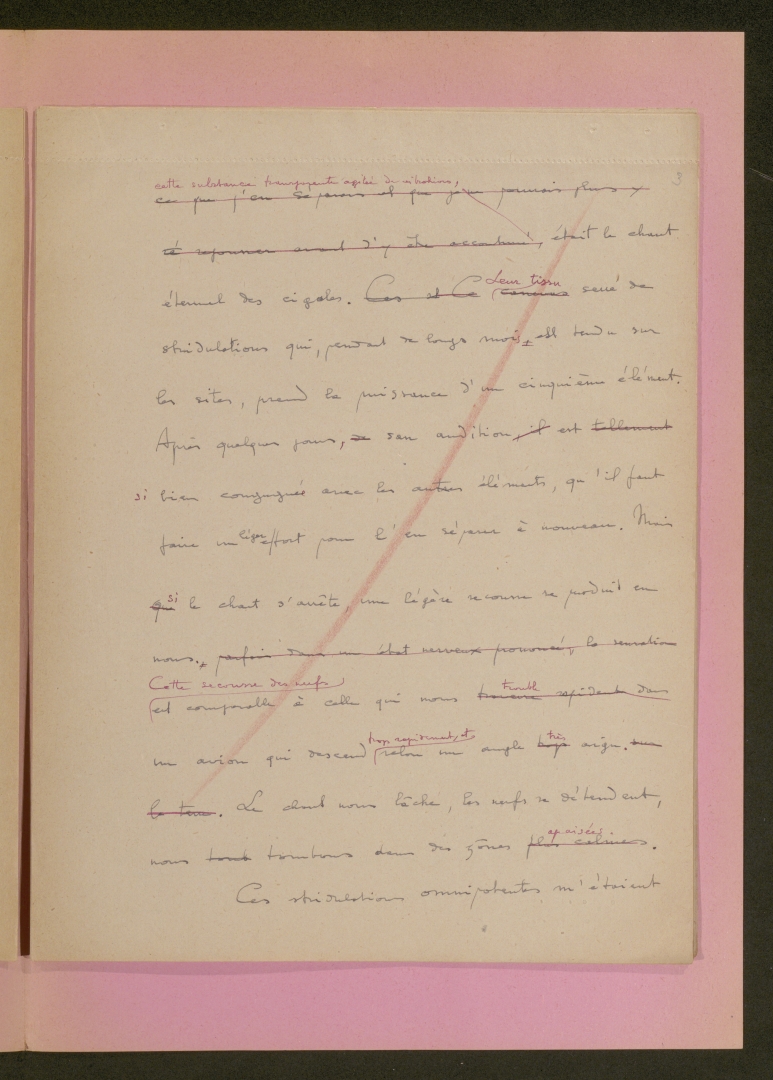 3
cette substance transparente agitée de vibrations,
ce que j'en séparais et que je ne pouvais plus y
était le chant
éternel des cigales. Ces et Ce Leur tissu serré de
stridulations qui, pendant de longs mois, est tendu sur
les sites, prend la puissance d'un cinquième élément.
Après quelques jours, son audition, il est tellement
si bien conjuguée avec les autres éléments, qu'il faut
faire un léger effort pour l'en séparer à nouveau. Mais
qui si le chant s'arrête, une légère secousse se produit en
nous. parfois dans un état nerveux prononcé, la sensation
Cette secousse des nerfs
est comparable à celle qui nous trouble dans
trop rapidement, et
un avion qui descend selon un angle trop très aigu.
la terre. Le chant nous lâche, les nerfs se détendent,
apaisées.
nous tombons dans des zônes plus calmes.
Ces stridulations omnipotentes m'étaient